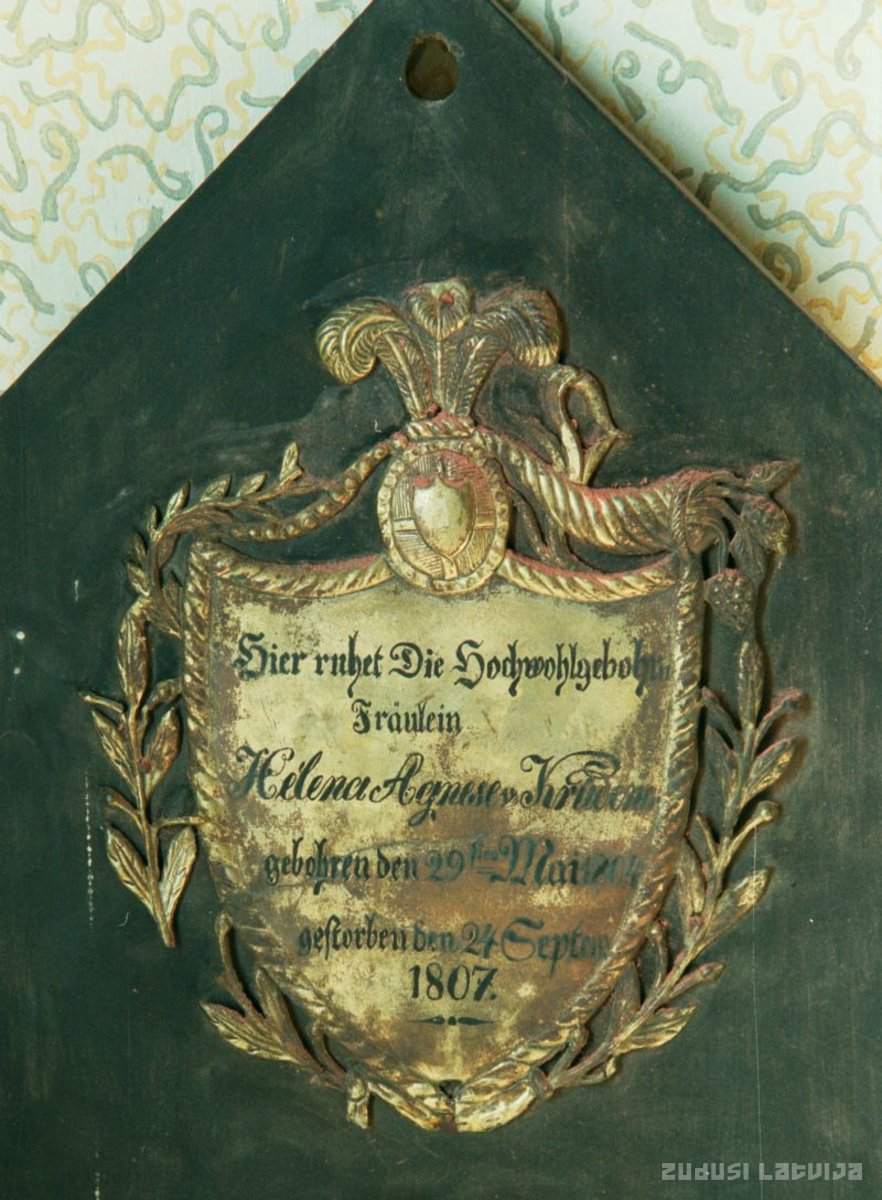 Hier ruhet Die Hochwohlgebohrn
Fräulein
Helena Agnese v.
gebohren den 29sten Mai 1804
gestorben den 24 Septem
1807.
ZUDUSI LATVIJA